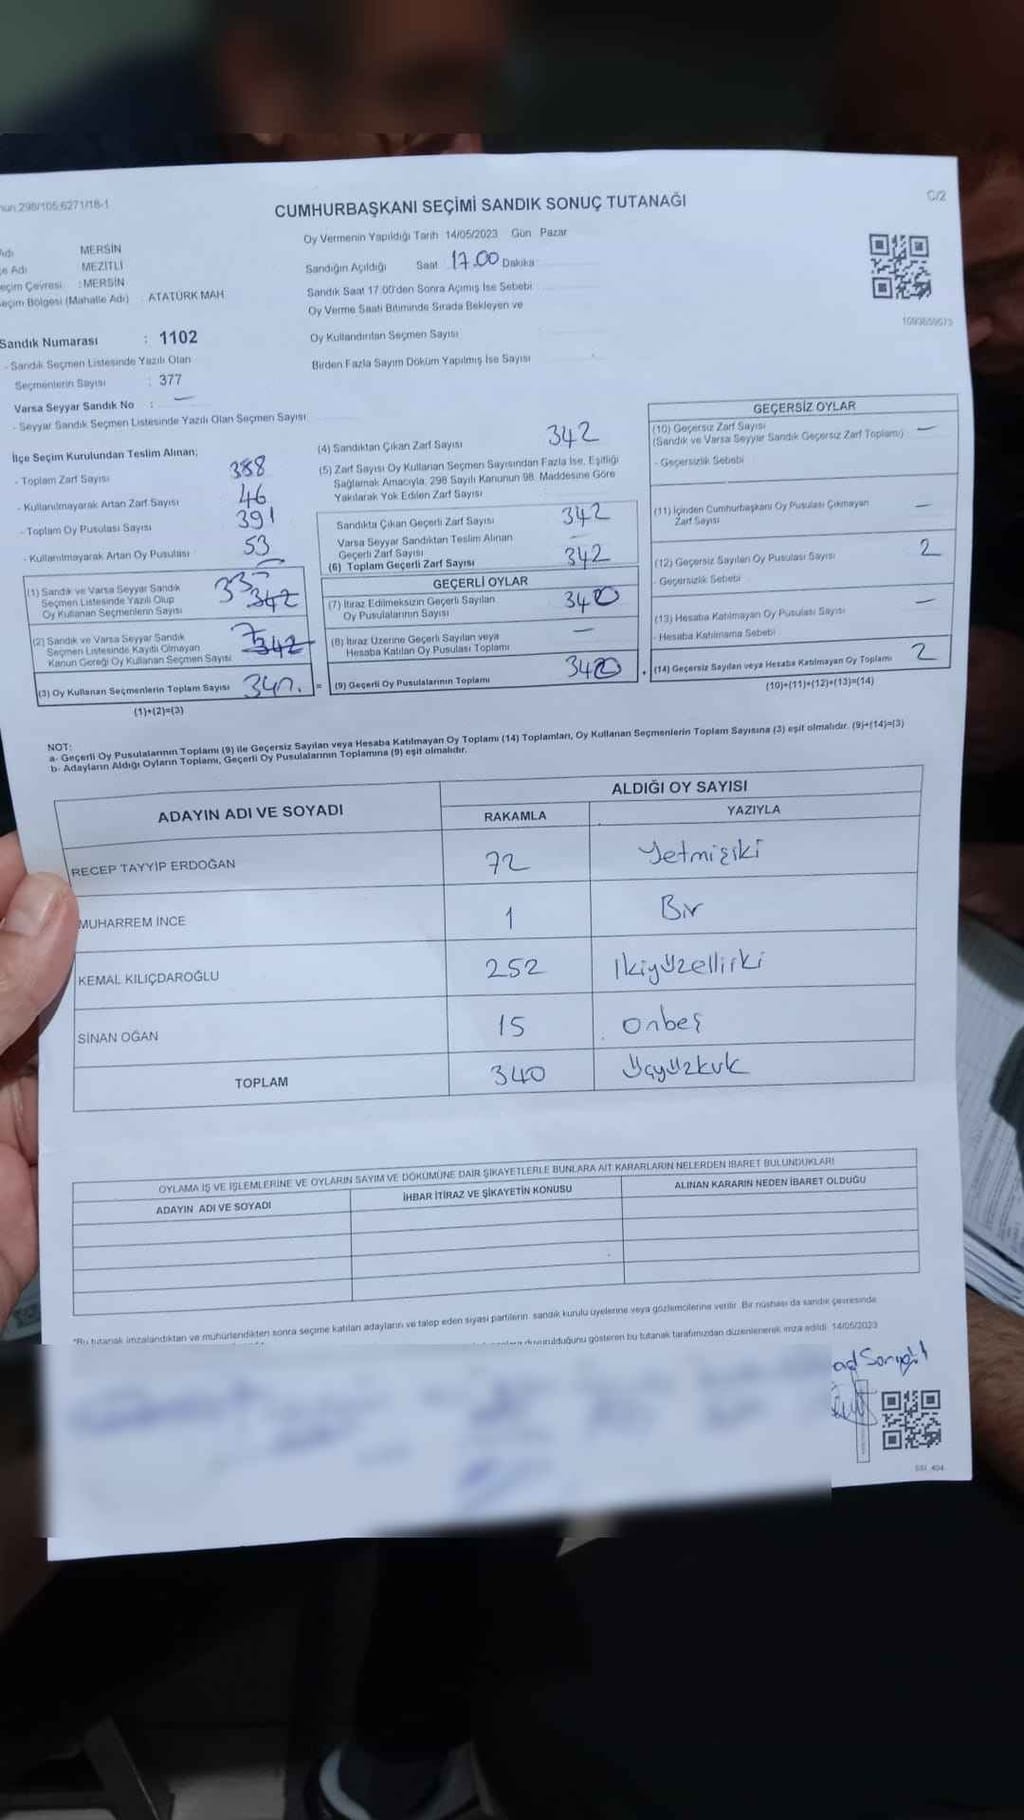 CUMHURBAŞKANI SEÇİMİ SANDIK SONUÇ TUTANAĞI
C/2
298/105;6271/18-1
Oy Vermenin Yapıldığı Tarih 14/05/2023 Gün Pazar
MERSİN
MEZİTLİ
Sandığın Açıldığı Saat 17.00 Dakika
eçim Çevresi : MERSİN
eçim Bölgesi (Mahalle Adı) : ATATÜRK MAH
Sandık Saat 17.00'den Sonra Açımış İse Sebebi
Oy Verme Saati Bitiminde Sırada Bekleyen ve
Oy Kullandırılan Seçmen Sayısı
Birden Fazla Sayım Döküm Yapılmış İse Sayısı
Sandık Numarası : 1102
- Sandık Seçmen Listesinde Yazılı Olan
Seçmenlerin Sayısı : 377
Varsa Seyyar Sandık No : —
- Seyyar Sandık Seçmen Listesinde Yazılı Olan Seçmen Sayısı
İlçe Seçim Kurulundan Teslim Alınan;
- Toplam Zarf Sayısı 388
- Kullanılmayarak Artan Zarf Sayısı 46
- Toplam Oy Pusulası Sayısı 391
- Kullanılmayarak Artan Oy Pusulası 53
(1) Sandık ve Varsa Seyyar Sandık
Seçmen Listesinde Yazılı Olup
Oy Kullanan Seçmenlerin Sayısı 342
(2) Sandık ve Varsa Seyyar Sandık
Seçmen Listesinde Kayıtlı Olmayan
Kanun Gereği Oy Kullanan Seçmen Sayısı 7 342
(3) Oy Kullanan Seçmenlerin Toplam Sayısı =
(1)+(2)=(3)
(4) Sandıktan Çıkan Zarf Sayısı 342
(5) Zarf Sayısı Oy Kullanan Seçmen Sayısından Fazla İse, Eşitliği
Sağlamak Amacıyla, 298 Sayılı Kanunun 98. Maddesine Göre
Yakılarak Yok Edilen Zarf Sayısı
Sandıkta Çıkan Geçerli Zarf Sayısı 342
Varsa Seyyar Sandıktan Teslim Alınan
Geçerli Zarf Sayısı —
(6) Toplam Geçerli Zarf Sayısı 342
GEÇERLİ OYLAR
(7) İtiraz Edilmeksizin Geçerli Sayılan
Oy Pusulalarının Sayısı 340
(8) İtiraz Üzerine Geçerli Sayılan veya
Hesaba Katılan Oy Pusulası Toplamı —
(9) Geçerli Oy Pusulalarının Toplamı 340
GEÇERSİZ OYLAR
(10) Geçersiz Zarf Sayısı —
(Sandık ve Varsa Seyyar Sandık Geçersiz Zarf Toplamı)
- Geçersizlik Sebebi
(11) İçinden Cumhurbaşkanı Oy Pusulası Çıkmayan
Zarf Sayısı —
(12) Geçersiz Sayılan Oy Pusulası Sayısı 2
- Geçersizlik Sebebi
(13) Hesaba Katılmayan Oy Pusulası Sayısı —
- Hesaba Katılmama Sebebi
(14) Geçersiz Sayılan veya Hesaba Katılmayan Oy Toplamı 2
(10)+(11)+(12)+(13)=(14)
NOT:
a- Geçerli Oy Pusulalarının Toplamı (9) ile Geçersiz Sayılan veya Hesaba Katılmayan Oy Toplamı (14) Toplamları, Oy Kullanan Seçmenlerin Toplam Sayısına (3) eşit olmalıdır. (9)+(14)=(3)
b- Adayların Aldığı Oyların Toplamı, Geçerli Oy Pusulalarının Toplamına (9) eşit olmalıdır.
ADAYIN ADI VE SOYADI
ALDIĞI OY SAYISI
RAKAMLA YAZIYLA
RECEP TAYYİP ERDOĞAN 72 Yetmişiki
MUHARREM İNCE 1 Bir
KEMAL KILIÇDAROĞLU 252 İkiyüzelliiki
SİNAN OĞAN 15 Onbeş
TOPLAM 340 Üçyüzkırk
OYLAMA İŞ VE İŞLEMLERİNE VE OYLARIN SAYIM VE DÖKÜMÜNE DAİR ŞİKAYETLERLE BUNLARA AİT KARARLARIN NELERDEN İBARET BULUNDUKLARI
ADAYIN ADI VE SOYADI İHBAR İTİRAZ VE ŞİKAYETİN KONUSU ALINAN KARARIN NEDEN İBARET OLDUĞU
"Bu tutanak imzalandıktan ve mühürlendikten sonra seçime katılan adayların ve talep eden siyasi partilerin sandık kurulu üyelerine veya gözlemcilerine verilir. Bir nüshası da sandık çevresinde
duyurulduğunu gösteren bu tutanak tarafımızdan düzenlenerek imza edildi. 14/05/2023